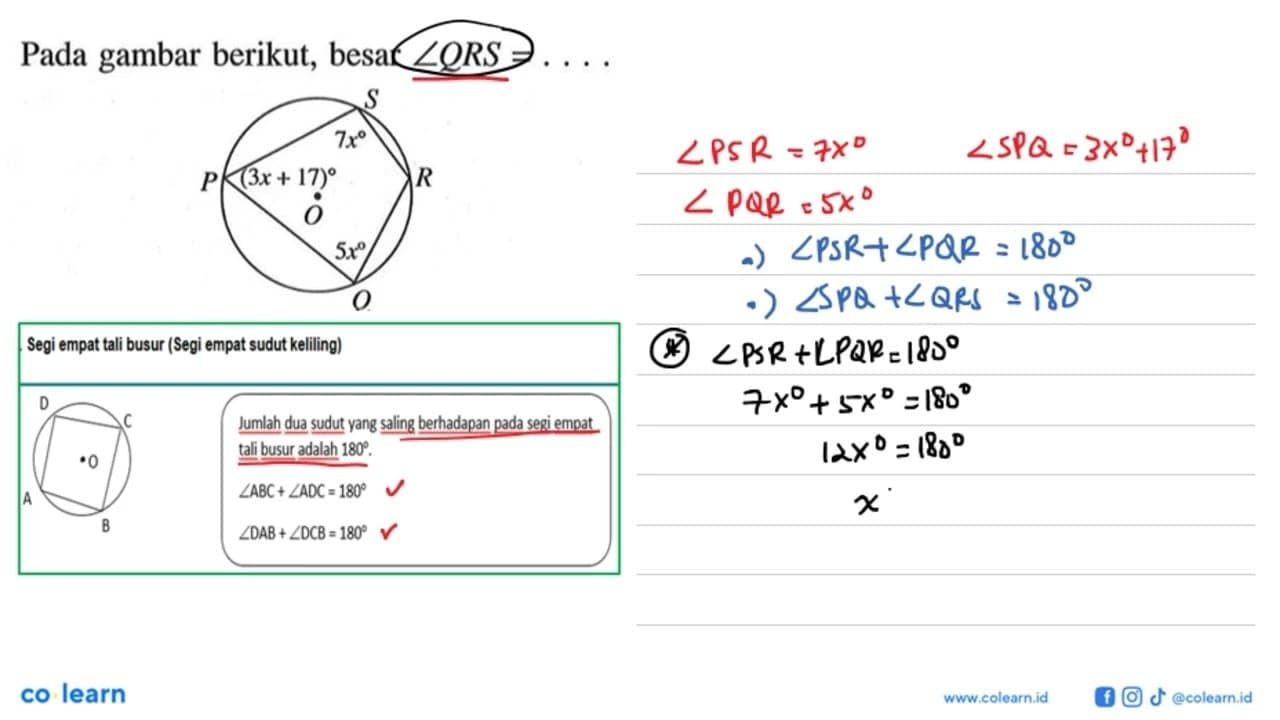 Pada gambar berikut, besar ∠QRS = . . . .
S
7x°
P (3x + 17)° R
O
5x°
Q
Segi empat tali busur (Segi empat sudut keliling)
D
C
•O
A
B
Jumlah dua sudut yang saling berhadapan pada segi empat
tali busur adalah 180°.
∠ABC + ∠ADC = 180° ✓
∠DAB + ∠DCB = 180° ✓
∠PSR = 7x° ∠SPQ = 3x° + 17°
∠PQR = 5x°
•) ∠PSR + ∠PQR = 180°
•) ∠SPQ + ∠QRS = 180°
* ∠PSR + ∠PQR = 180°
7x° + 5x° = 180°
12x° = 180°
x
co learn
www.colearn.id @colearn.id